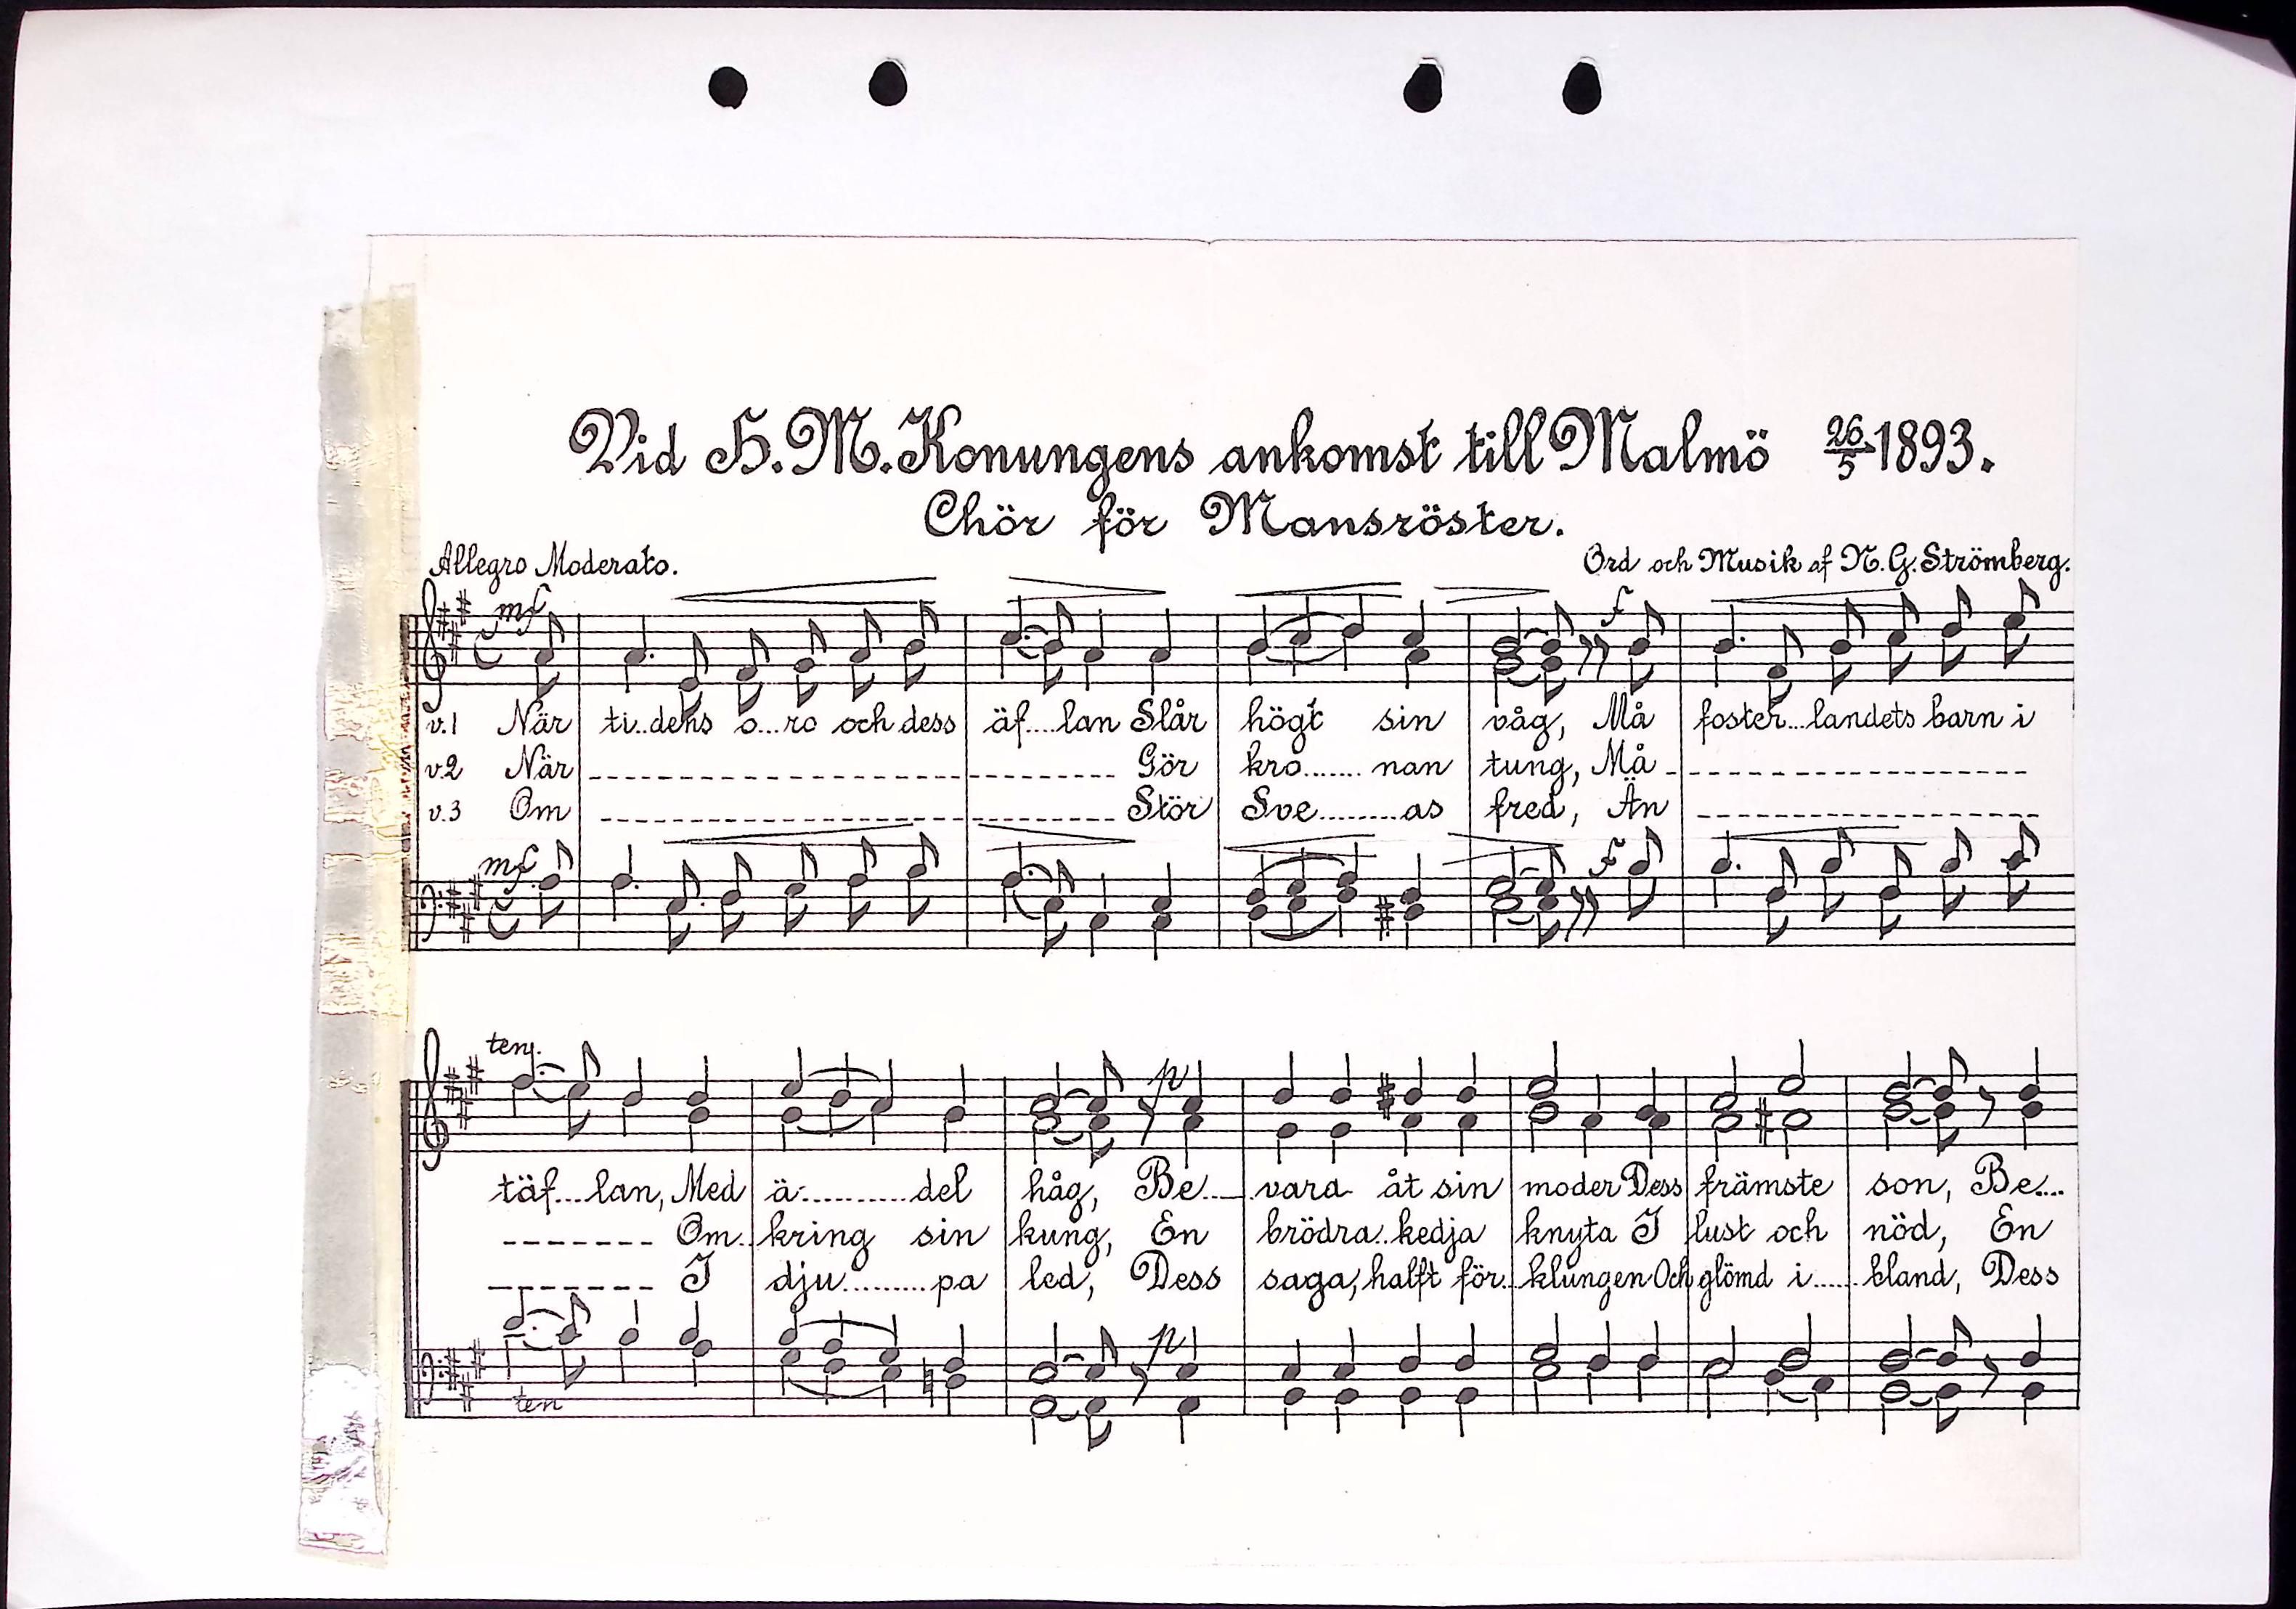 Vid H. M. Konungens ankomst till Malmö 26/5 1893.
Chör för Mansröster.
Allegro Moderato.
Ord och Musik af N. G. Strömberg.
mf
f
v.1 När ti..dens o...ro och dess äf....lan Slår högt sin våg, Må foster...landets barn i
v.2 När _ _ _ _ _ _ _ _ Gör kro....... nan tung, Må _ _ _ _ _ _ _ _
v.3 Om _ _ _ _ _ _ _ _ Stör Sve.........as fred, Än _ _ _ _ _ _ _ _
mf
f
ten.
p
täf....lan, Med ä...........del håg, Be.... vara åt sin moder Dess främste son, Be....
_ _ _ _ _ _ _ Om.. kring sin kung, En brödra..kedja knyta I lust och nöd, En
_ _ _ _ _ _ _ I dju.........pa led, Dess saga, halft för...klungen Och glömd i.....bland, Dess
p
ten